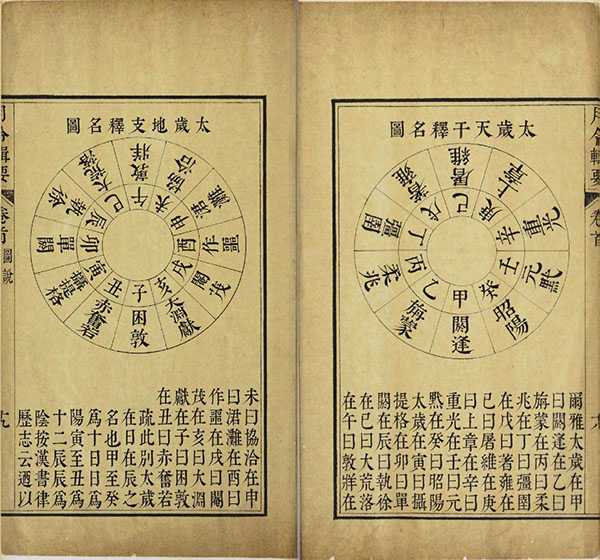 月令輯要
卷首
太歲天干釋名圖
甲 閼逢
乙 旃蒙
丙 柔兆
丁 彊圉
戊 著雍
己 屠維
庚 上章
辛 重光
壬 元黓
癸 昭陽
爾雅太歲在甲
曰閼逢在乙曰
旃蒙在丙曰柔
兆在丁曰彊圉
在戊曰著雍在
己曰屠維在庚
曰上章在辛曰
重光在壬曰元
黓在癸曰昭陽
太歲在寅曰攝
提格在卯曰單
閼在辰曰執徐
在巳曰大荒落
在午曰敦牂在
太歲地支釋名圖
子 困敦
丑 赤奮若
寅 攝提格
卯 單閼
辰 執徐
巳 大荒落
午 敦牂
未 協洽
申 涒灘
酉 作噩
戌 閹茂
亥 大淵獻
未曰協洽在申
曰涒灘在酉曰
作噩在戌曰閹
茂在亥曰大淵
獻在子曰困敦
在丑曰赤奮若
疏此別太歲
在日在辰之
名也甲至癸
為十日日為
陽寅至丑為
十二辰辰為
陰按漢書律
歷志云迺以
月令輯要
卷首
圖說